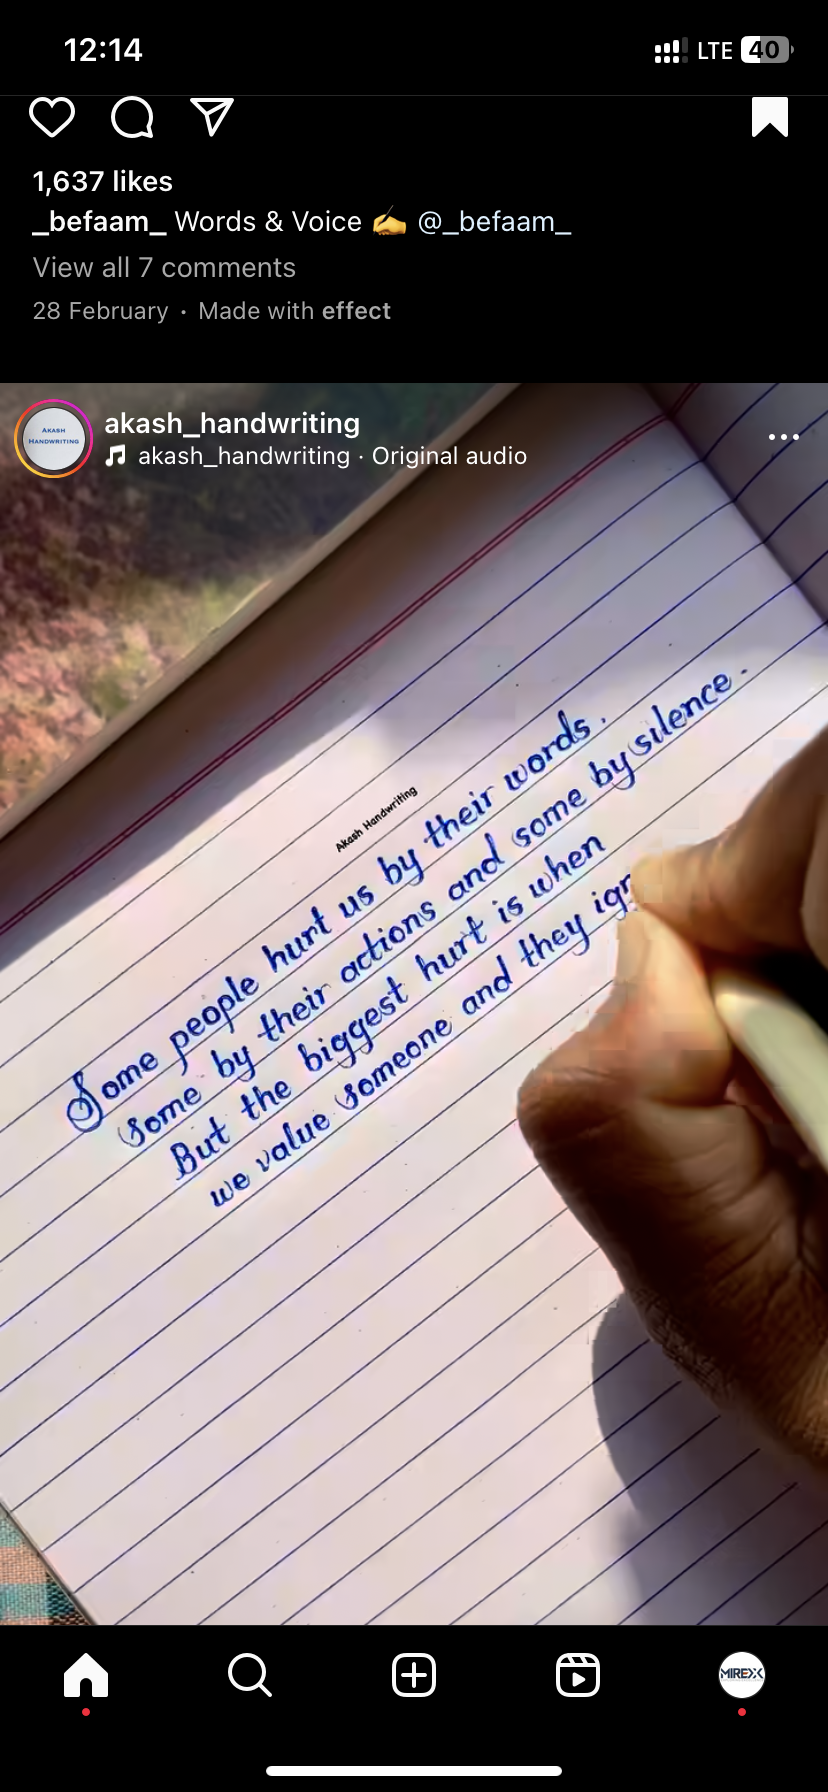 12:14
LTE 40
1,637 likes
_befaam_ Words & Voice ✍️ @_befaam_
View all 7 comments
28 February • Made with effect
AKASH
HANDWRITING
akash_handwriting
akash_handwriting · Original audio
Akash Handwriting
Some people hurt us by their words.
Some by their actions and some by silence.
But the biggest hurt is when
we value someone and they ign
MIREXX